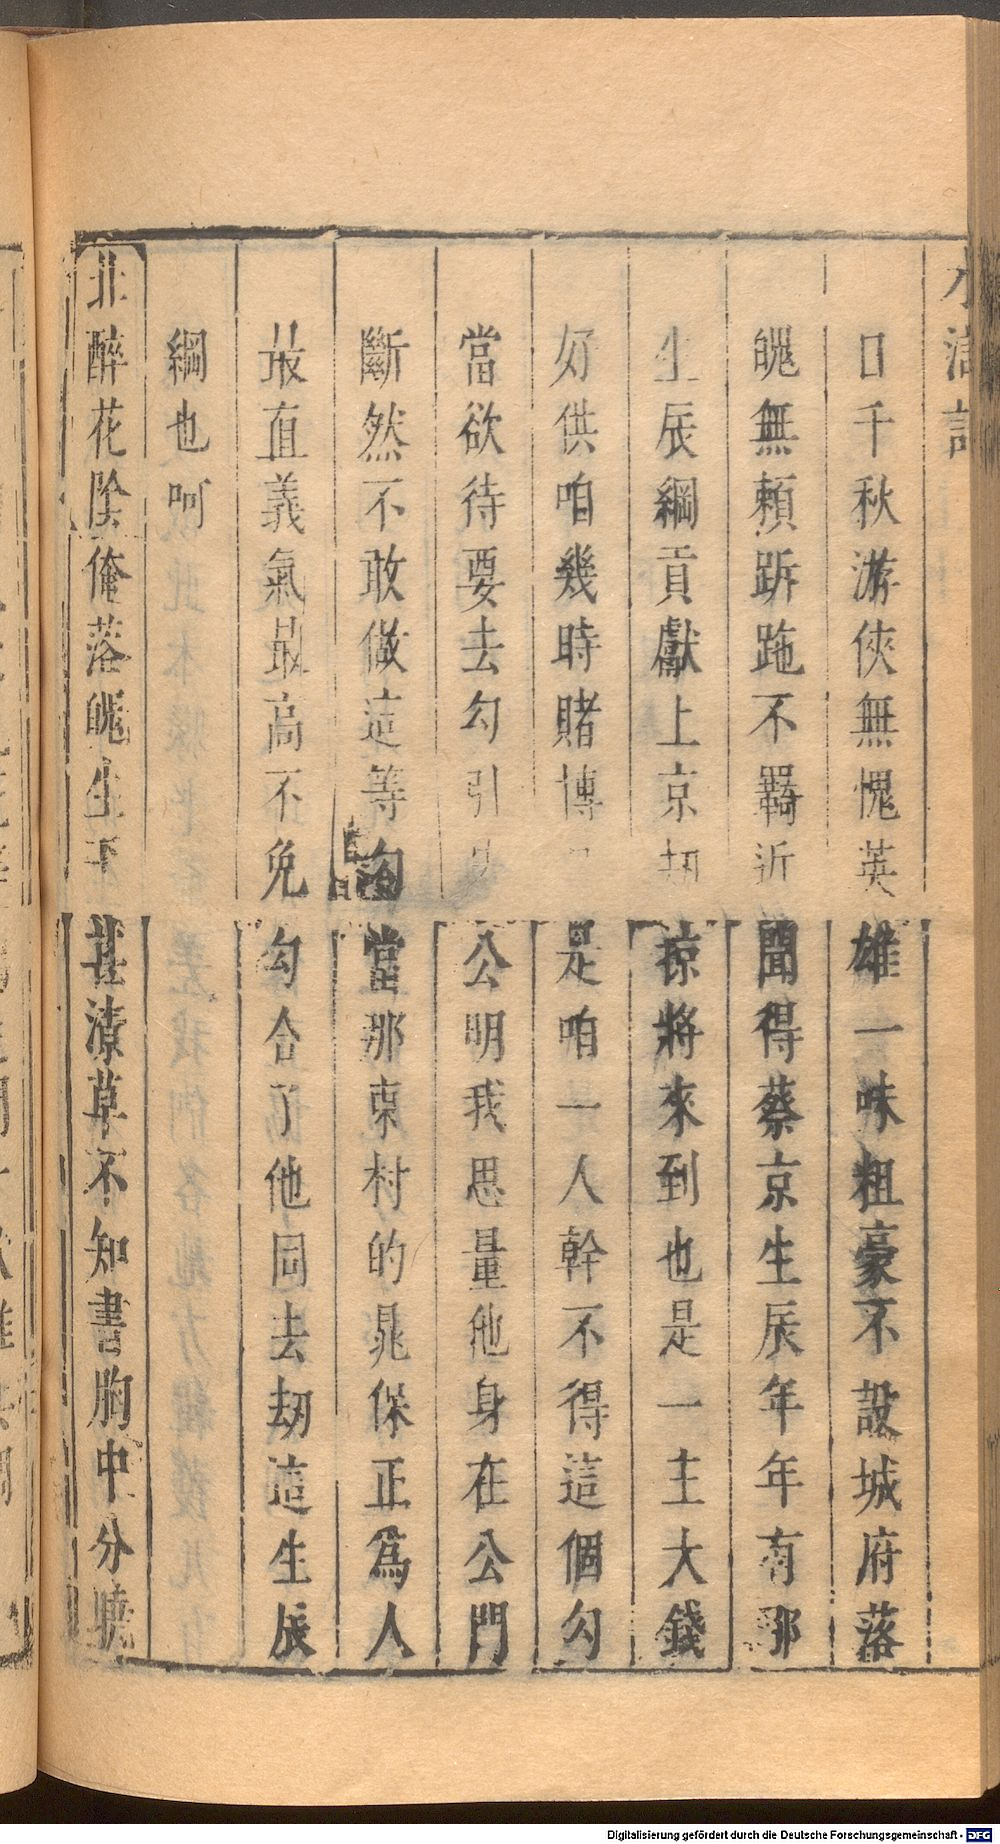 水滸記
日千秋游俠無愧英雄一味粗豪不設城府落
魄無賴跅跎不羇近聞得蔡京生辰年年有那
生辰綱貢獻上京刼掠將來到也是一主大錢
好供咱幾時賭博只是咱一人幹不得這個勾
當欲待要去勾引公明我思量他身在公門
斷然不敢做這等勾當那東村的晁保正爲人
最直義氣最高不免勾合了他同去刼這生辰
綱也呵
北醉花陰俺落魄生平甚潦草不知書胸中分曉
Digitalisierung gefördert durch die Deutsche Forschungsgemeinschaft - DFG